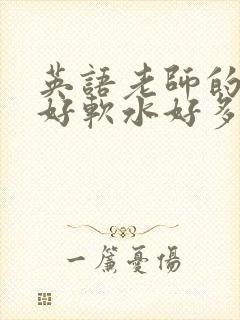 英語老師的
好軟水好多
一簾憂傷